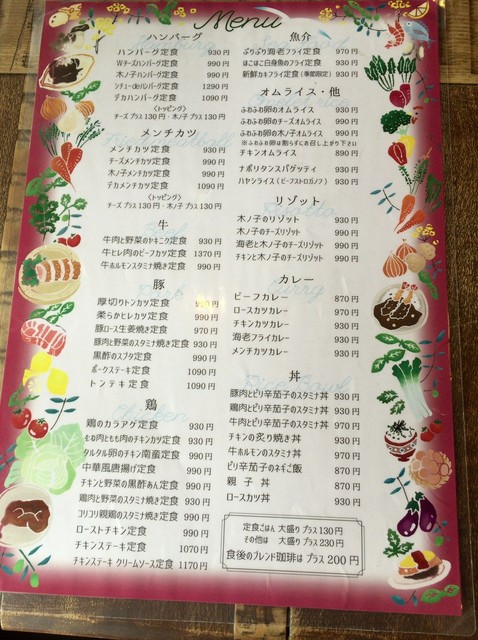 Menu
ハンバーグ
ハンバーグ定食 930円
Wチーズハンバーグ定食 990円
木ノ子ハンバーグ定食 990円
シチューdeハンバーグ定食 1290円
デカハンバーグ定食 1090円
〈トッピング〉
チーズ プラス 130円・木ノ子 プラス 130円
メンチカツ
メンチカツ定食 930円
チーズメンチカツ定食 990円
木ノ子メンチカツ定食 990円
デカメンチカツ定食 1090円
〈トッピング〉
チーズ プラス 130円・木ノ子 プラス 130円
牛
牛肉と野菜のヤキニク定食 930円
牛ヒレ肉のビーフカツ定食 1370円
牛ホルモンスタミナ焼き定食 990円
豚
厚切りトンカツ定食 円
柔らかヒレカツ定食 990円
豚ロース生姜焼き定食 970円
豚肉と野菜のスタミナ焼き定食 930円
黒酢のスブタ定食 990円
ポークステーキ定食 1090円
トンテキ定食 1090円
鶏
鶏のカラアゲ定食 930円
むね肉ともも肉のチキンカツ定食 930円
タルタル卵のチキン南蛮定食 990円
中華風唐揚げ定食 990円
チキンと野菜の黒酢あん定食 990円
鶏肉と野菜のスタミナ焼き定食 930円
コリコリ親鶏のスタミナ焼き定食 990円
ローストチキン定食 990円
チキンステーキ定食 1070円
チキンステーキ クリームソース定食 1170円
魚介
ぷりぷり海老フライ定食 970円
ほこほこ白身魚のフライ定食 930円
新鮮カキフライ定食(季節限定) 930円
オムライス・他
ふわふわ卵のオムライス 930円
ふわふわ卵のチーズオムライス 990円
ふわふわ卵の木ノ子オムライス 990円
※ふわふわ卵は割らずにお召し上がり下さい
チキンオムライス 890円
ナポリタンスパゲッティ 930円
ハヤシライス(ビーフストロガノフ) 930円
リゾット
木ノ子のリゾット 930円
木ノ子のチーズリゾット 990円
海老と木ノ子のチーズリゾット 990円
チキンと木ノ子のチーズリゾット 990円
カレー
ビーフカレー 870円
ロースカツカレー 970円
チキンカツカレー 930円
海老フライカレー 930円
メンチカツカレー 930円
丼
豚肉とピリ辛茄子のスタミナ丼 930円
鶏肉とピリ辛茄子のスタミナ丼 930円
牛肉とピリ辛茄子のスタミナ丼 930円
チキンの炙り焼き丼 930円
牛ホルモンのスタミナ丼 930円
ピリ辛茄子のネギご飯 870円
親子丼 870円
ロースカツ丼 930円
定食ごはん 大盛り プラス 130円
その他は 大盛り プラス 230円
食後のブレンド珈琲は プラス 200円